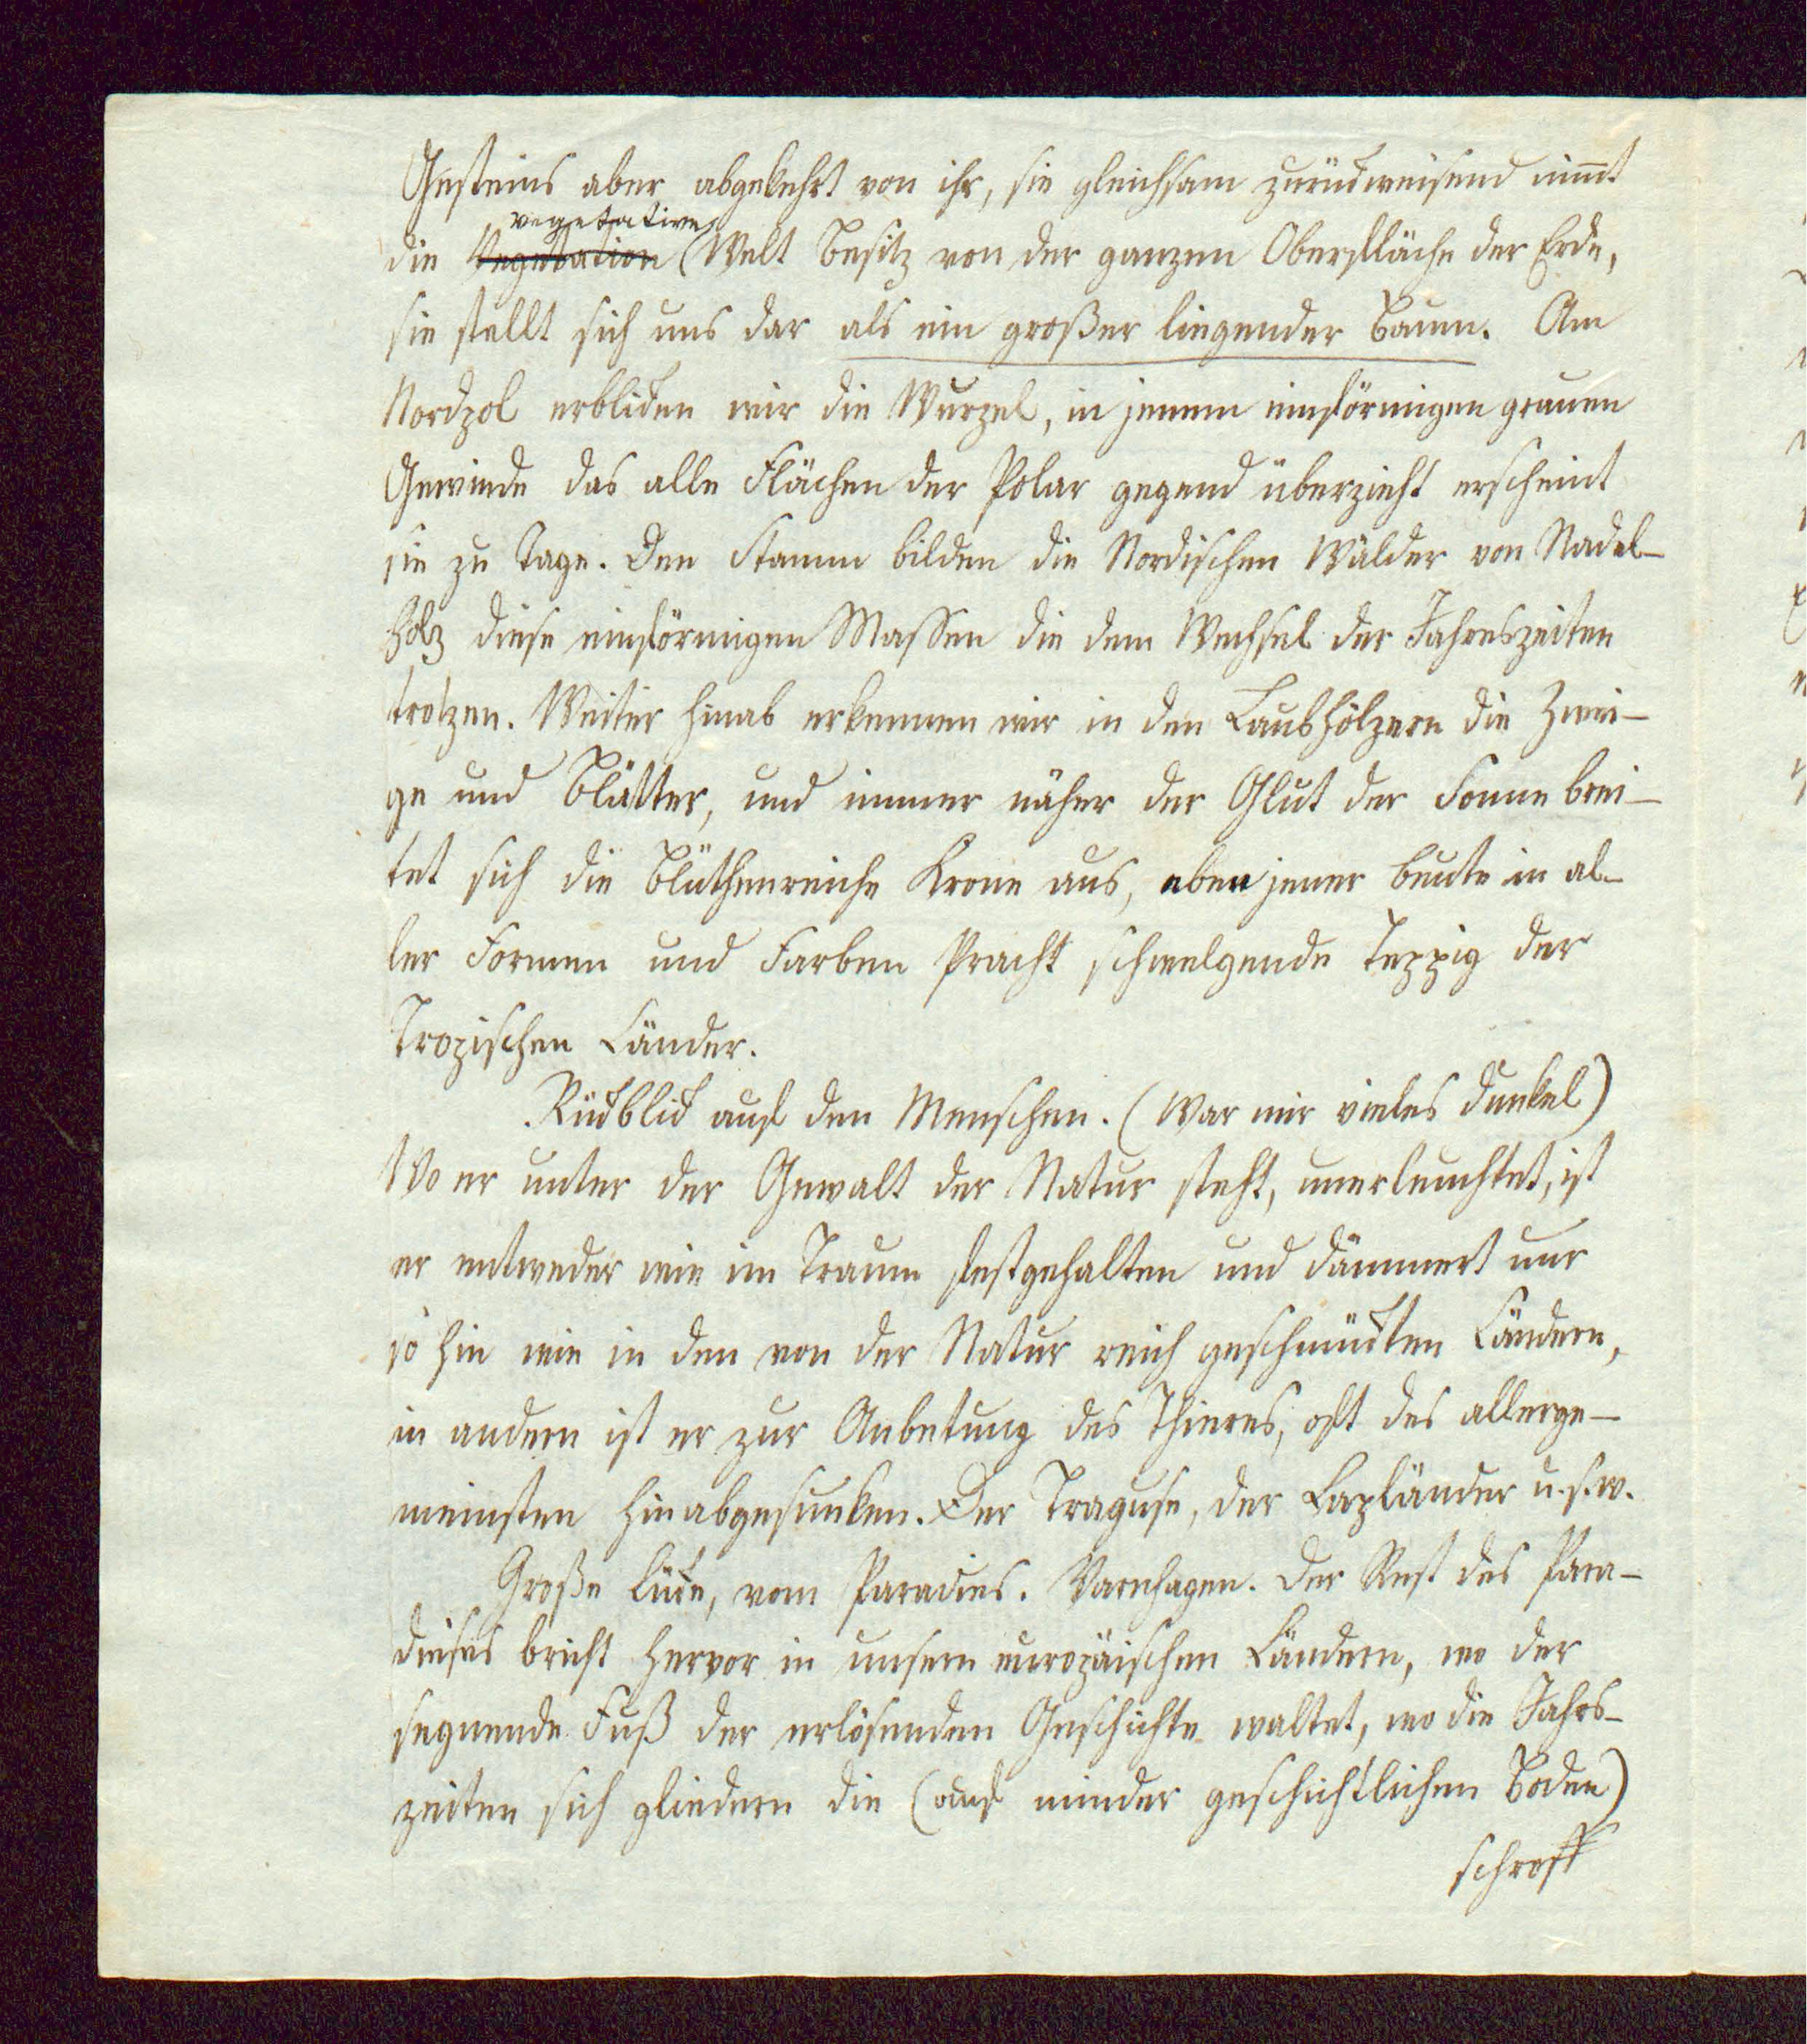 Gesteins aber abgekehrt von ihr, sie gleichsam zurückweisend nim̄t
vegetative
die Vegetation (Welt Besitz von der ganzen Oberfläche der Erde,
sie stellt sich uns dar als ein großer liegender Baum. Am
Nordpol erblicken wir die Wurzel, in jenem einförmigen grauen
Gewinde das alle Flächen der Polar gegend überzieht erscheint
sie zu Tage. Den Stamm bilden die Nordischen Wälder von Nadel-
holz diese einförmigen Massen die dem Wechsel der Jahreszeiten
trotzen. Weiter hinab erkennen wir in den Laubhölzern die Zwei-
ge und Blätter, und immer näher der Glut der Sonne brei-
tet sich die blüthenreiche Krone aus, eben jener bunte in al-
ler Formen und Farben Pracht schwelgende Teppig der
Tropischen Länder.
Rückblick auf den Menschen. (War mir vieles dunkel)
Wo er unter der Gewalt der Natur steht, unerleuchtet, ist
er entweder wie im Traum festgehalten und dämmert nur
so hin wie in den von der Natur reich geschmückten Ländern,
in andern ist er zur Anbetung des Thieres, oft des allerge-
meinsten hinabgesunken. Der Traguse, der Lapländer u.s.w.
Große Lücke, vom Paradies. Varnhagen. Der Rest des Para-
dieses bricht hervor in unsern europäischen Ländern, wo der
segnende Fuß der erlösenden Geschichte waltet, wo die Jahrs-
zeiten sich gliedern die (auf minder geschichtlichen Boden)
schroff